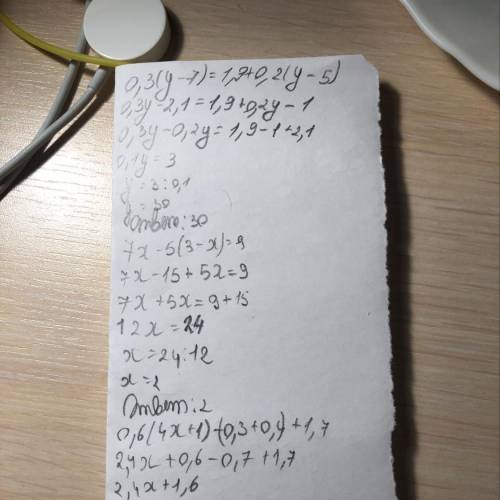 0,3(y-7)=1,9+0,2(y-5)
0,3y-2,1=1,9+0,2y-1
0,3y-0,2y=1,9-1+2,1
0,1y=3
y=3:0,1
y=30
Ответ:30
7x-5(3-x)=9
7x-15+5x=9
7x+5x=9+15
12x=24
x=24:12
x=2
Ответ:2
0,6(4x+1)-(0,3+0,4)+1,7
2,4x+0,6-0,7+1,7
2,4x+1,6